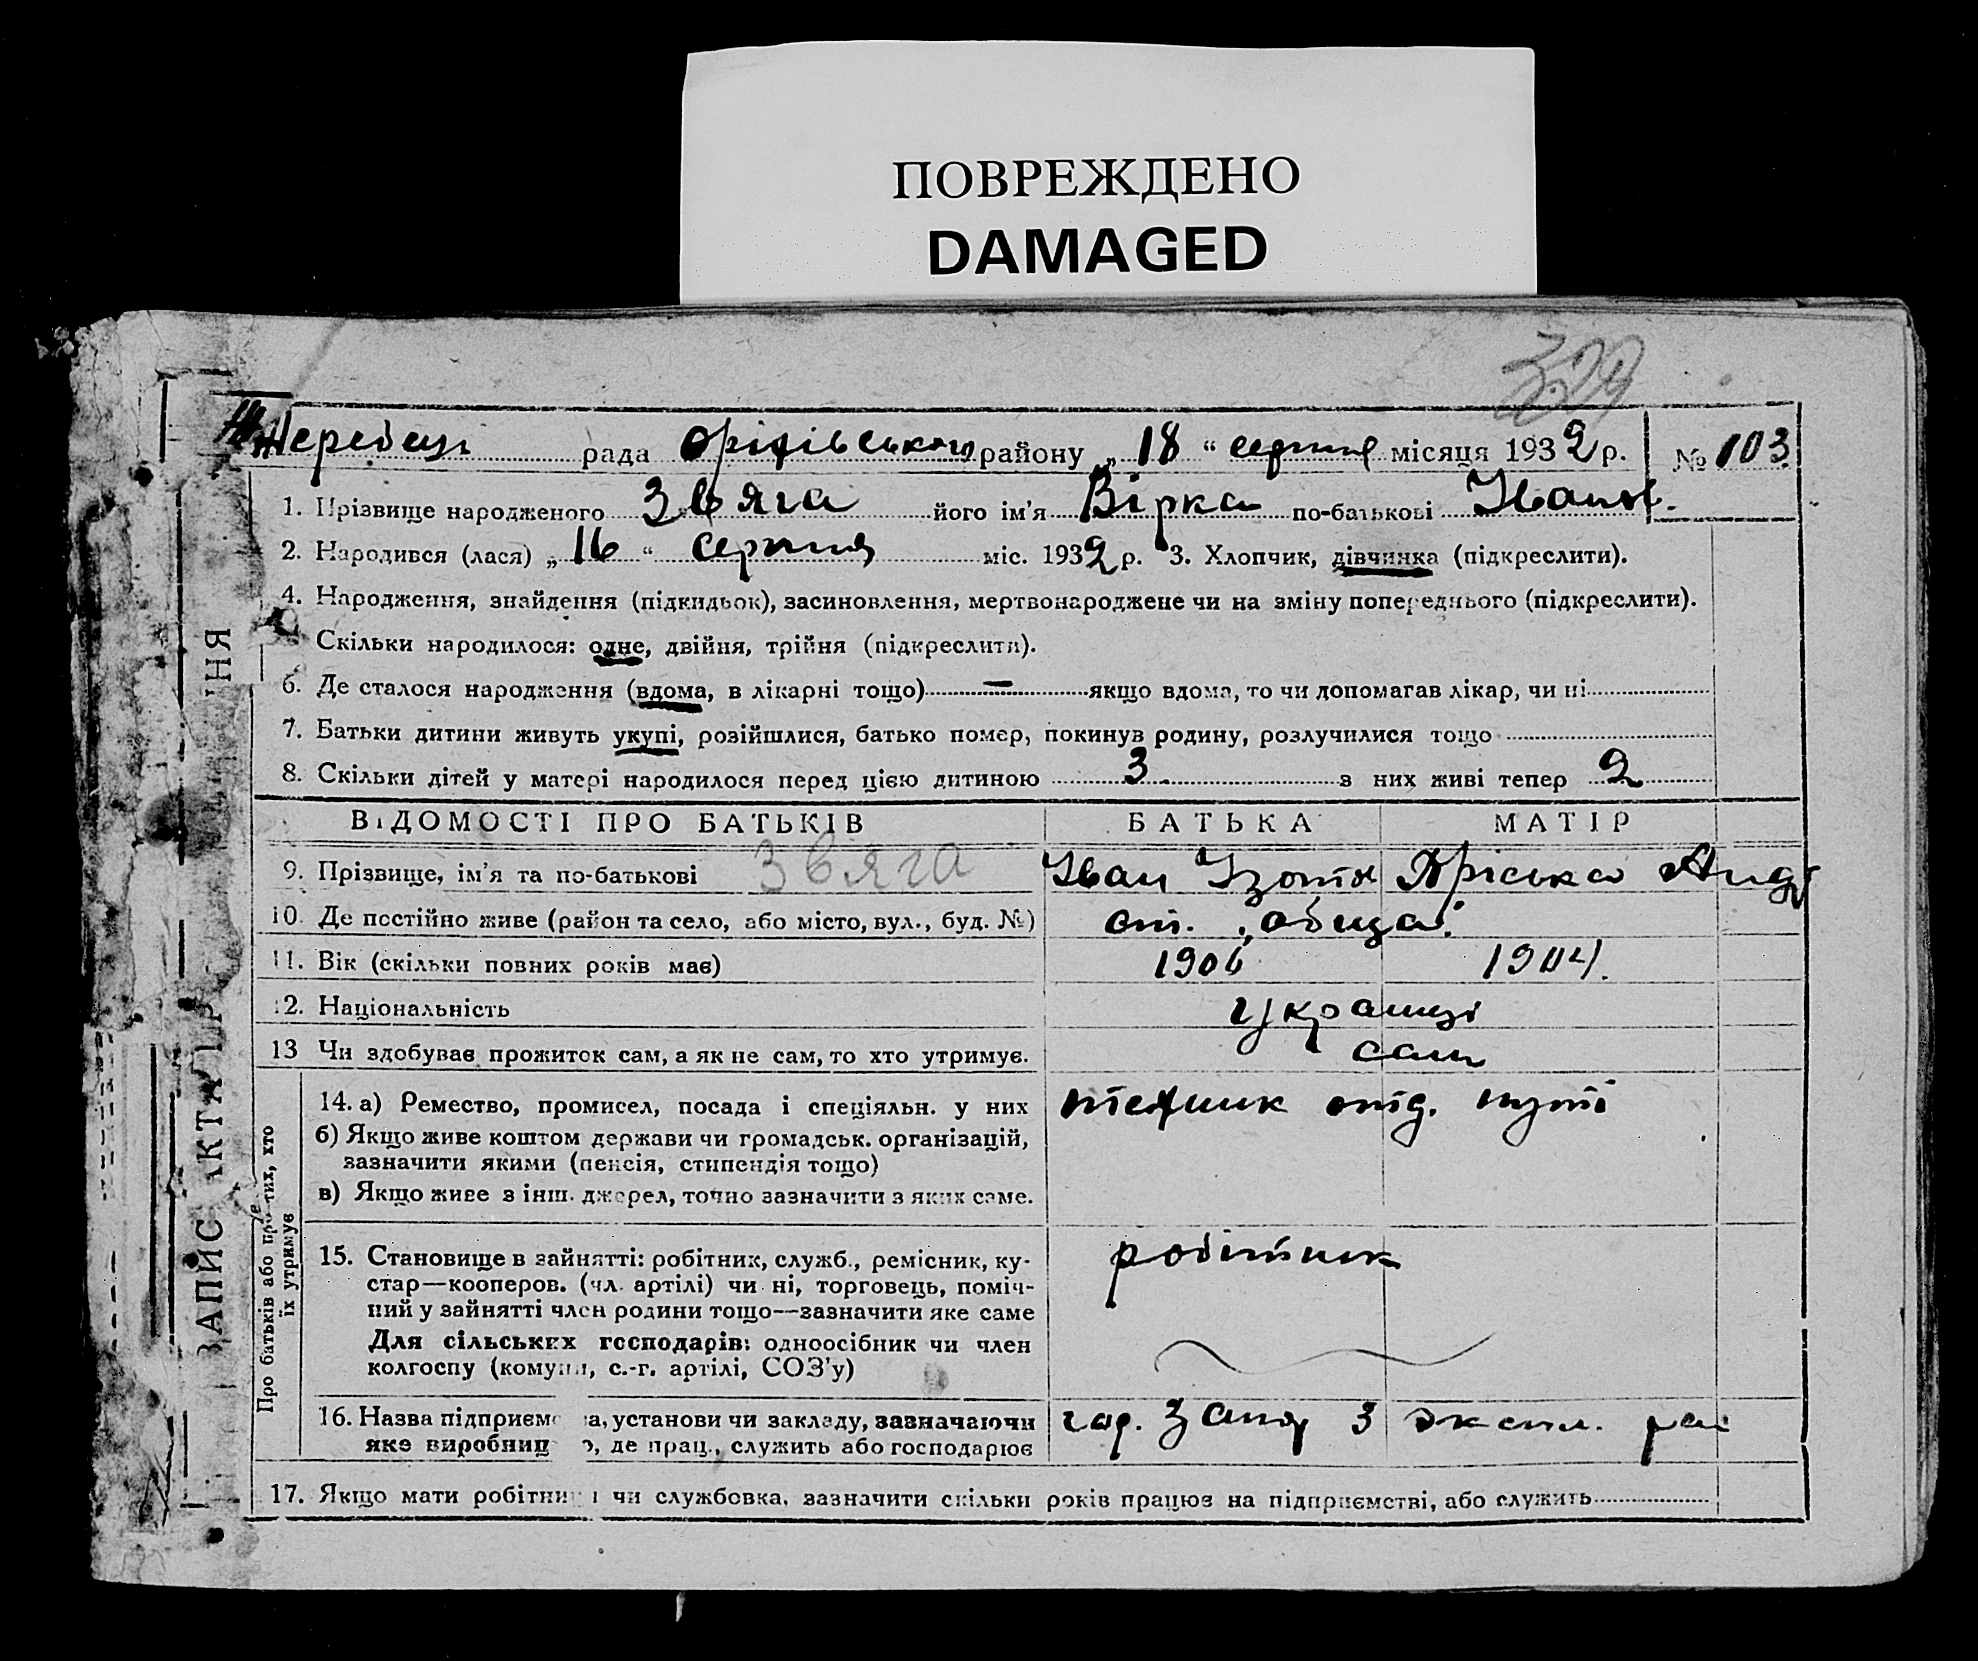 ПОВРЕЖДЕНО
DAMAGED
Жеребець рада Оріхівського району „ 18 “ серпня місяця 1932 р. № 103
1. Прізвище народженого Звяга його ім'я Вірка по-батькові Іванов.
2. Народився (лася) „ 16 “ серпня міс. 1932 р. 3. Хлопчик, дівчинка (підкреслити).
4. Народження, знайдення (підкидьок), засиновлення, мертвонароджене чи на зміну попереднього (підкреслити).
Скільки народилося: одне, двійня, трійня (підкреслити).
6. Де сталося народження (вдома, в лікарні тощо) — якщо вдома, то чи допомагав лікар, чи ні
7. Батьки дитини живуть укупі, розійшлися, батько помер, покинув родину, розлучилися тощо
8. Скільки дітей у матері народилося перед цією дитиною 3 з них живі тепер 2
ВІДОМОСТІ ПРО БАТЬКІВ БАТЬКА МАТІР
9. Прізвище, ім'я та по-батькові Звяга Іван Ізотов Пріська Анд
10. Де постійно живе (район та село, або місто, вул., буд. №) ст.
11. Вік (скільки повних років має) 1906 1904.
12. Національність українці
13 Чи здобуває прожиток сам, а як не сам, то хто утримує. сам
14. а) Ремество, промисел, посада і спеціяльн. у них технік отд. путі
б) Якщо живе коштом держави чи громадськ. організацій,
зазначити якими (пенсія, стипендія тощо)
в) Якщо живе з інш. джерел, точно зазначити з яких саме.
15. Становище в зайнятті: робітник, служб., ремісник, ку-
стар—кооперов. (чл. артілі) чи ні, торговець, поміч-
ний у зайнятті член родини тощо—зазначити яке саме
робітник
Для сільських господарів: одноосібник чи член
колгоспу (комуни, с.-г. артілі, СОЗ'у)
16. Назва підприємс ва, установи чи закладу, зазначаючи
яке виробниц о, де прац., служить або господарює
З експл. рай
17. Якщо мати робітниця чи службовка, зазначити скільки років працює на підприємстві, або служить
ЗАПИС АКТА ПРО
ННЯ
Про батьків або про тих, хто
їх утримує